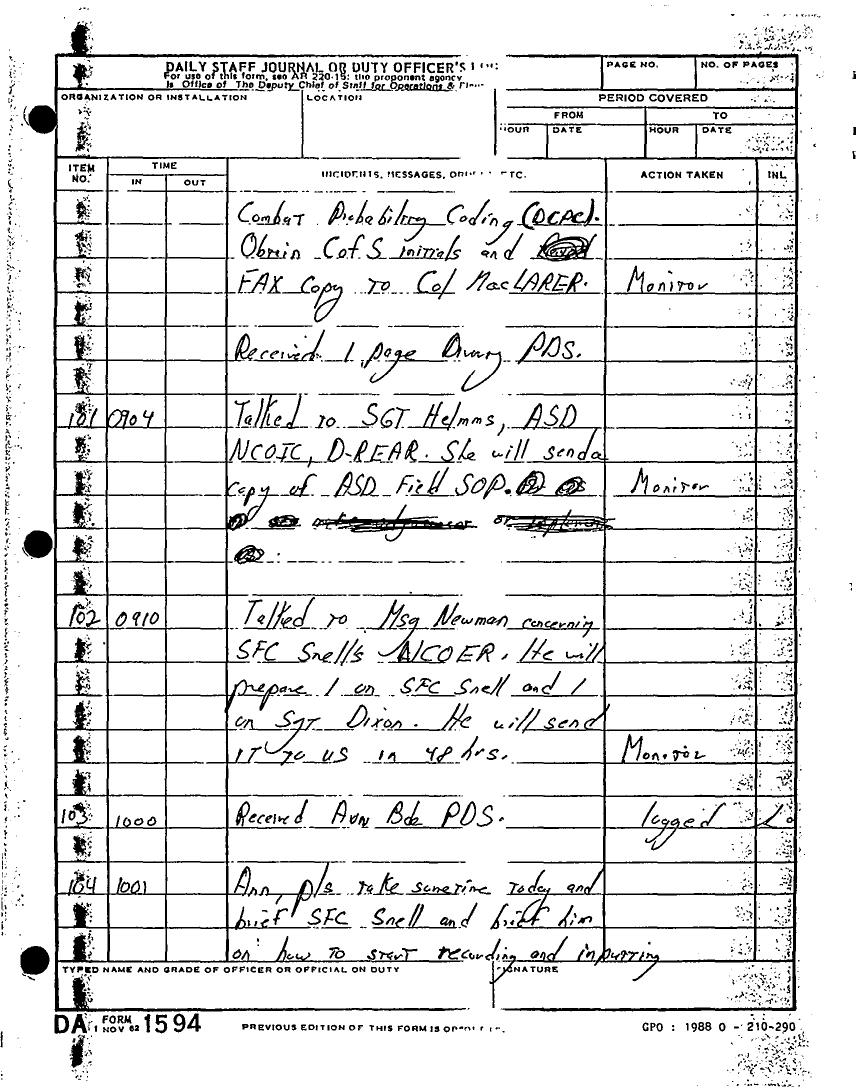 DAILY STAFF JOURNAL OR DUTY OFFICER'S
For use of this form, see AR 220-15; the proponent agency
is Office of The Deputy Chief of Staff for Operations &
PAGE NO.
NO. OF PAGES
ORGANIZATION OR INSTALLATION
LOCATION
PERIOD COVERED
FROM
TO
HOUR DATE HOUR DATE
ITEM NO. TIME IN OUT INCIDENTS, MESSAGES, ETC. ACTION TAKEN INL
Combat Probability Coding (DCPC).
Obtain C of S initials and
FAX Copy TO Col MacLARER. Monitor
Received 1 page Divarty PDS.
101 0904 Talked to SGT Helmms, ASD
NCOIC, D-REAR. She will send a
copy of ASD Field SOP. Monitor
102 0910 Talked to Msg Newman concerning
SFC Snell's NCOER. He will
prepare 1 on SFC Snell and 1
on Sgt Dixon. He will send
IT TO US in 48 hrs. Monitor
103 1000 Received Avn Bde PDS. logged
104 1001 Ann, pls take sometime today and
brief SFC Snell and brief him
on how to start recording and inputting
TYPED NAME AND GRADE OF OFFICER OR OFFICIAL ON DUTY
SIGNATURE
DA FORM 1 NOV 62 1594
PREVIOUS EDITION OF THIS FORM IS
GPO : 1988 O - 210-290